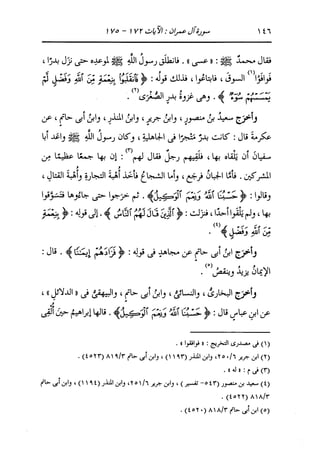 ١٤٦ سورة آل عمران : الآيات ١٧٢ - ١٧٥
فقال محمدٌ ﷺ : « عسى » . فانطلق رسولُ اللهِ ﷺ لموعده حتى نزَل بدرًا ،
فوافَوُا(١) السوقَ ، فابتاعُوا ، فذلك قولُه : ﴿ فَانقَلَبُوا بِنِعْمَةٍ مِّنَ اللَّهِ وَفَضْلٍ لَّمْ
يَمْسَسْهُمْ سُوءٌ ﴾ . وهى غزوةُ بدرٍ الصُّغْرَى(٢) .
وأخرَج سعيدُ بنُ منصورٍ ، وابنُ جريرٍ ، وابنُ المنذرِ ، وابنُ أبى حاتمٍ ، عن
عكرمةَ قال : كانت بدرٌ مَتْجَرًا فى الجاهليةِ ، وكان رسولُ اللهِ ﷺ واعَد أبا
سفيانَ أن يَلْقاه بها ، فلَقِيهم رجلٌ فقال لهم(٣) : إن بها جمعًا عظيمًا مِن
المشركين . فأمَّا الجبانُ فرجَع ، وأما الشجاعُ فأخَذ أُهْبةَ التجارةِ وأُهْبةَ القتالِ ،
وقالوا : ﴿ حَسْبُنَا اللَّهُ وَنِعْمَ الْوَكِيلُ ﴾ . ثم خرَجوا حتى جاءُوها فتَسَوَّقوا
بها ، ولم يَلْقَوا أحدًا ، فنزَلت : ﴿ الَّذِينَ قَالَ لَهُمُ النَّاسُ ﴾ . إلى قولِه : ﴿ بِنِعْمَةٍ
مِّنَ اللَّهِ وَفَضْلٍ ﴾(٤) .
وأخرَج ابنُ أبى حاتمٍ عن مجاهدٍ فى قولِه : ﴿ فَزَادَهُمْ إِيمَانًا ﴾ . قال :
الإيمانُ يزيدُ وينقصُ(٥) .
وأخرَج البخارىُّ ، والنسائىُّ ، وابنُ أبى حاتمٍ ، والبيهقىُّ فى « الدلائلِ » ،
عن ابنِ عباسٍ قال : ﴿ حَسْبُنَا اللَّهُ وَنِعْمَ الْوَكِيلُ ﴾ . قالها إبراهيمُ حينَ أُلْقِى
(١) فى مصدرى التخريج : « فوافقوا » .
(٢) ابن جرير ٢٥٠/٦، وابن المنذر (١١٩٣) ، وابن أبى حاتم ٨١٩/٣ (٤٥٢٣) .
(٣) فى م : « له » .
(٤) سعيد بن منصور (٥٤٣- تفسير ) ، وابن جرير ٢٥١/٦، وابن المنذر (١١٩٤) ، وابن أبى حاتم
٨١٨/٣ (٤٥٢٢) .
(٥) ابن أبى حاتم ٨١٨/٣ (٤٥٢٠) .